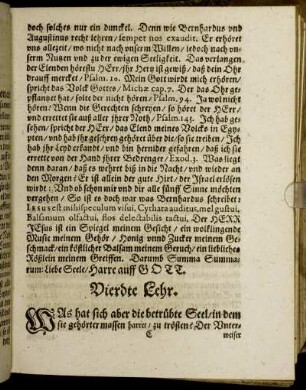 doch solches nur ein dunckel. Denn wie Bernhardus vnd
Augustinus recht lehren / semper nos exaudit. Er erhöret
vns allezeit / wo nicht nach vnserm Willen / jedoch nach vn-
serm Nutzen vnd zu der ewigen Seligkeit. Das verlangen
der Elenden hörestu HErr / jhr Hertz ist gewiß / daß dein Ohr
drauff mercket / Psalm. 10. Mein Gott wird mich erhören /
spricht das Volck Gottes / Michæ cap. 7. Der das Ohr ge-
pflantzet hat / solte der nicht hören / Psalm. 94. Ja wol nicht
hören: Wenn die Gerechten schreyen / so höret der HErr /
vnd errettet sie auß aller jhrer Noth / Psalm. 145. Ich hab ge-
sehen / spricht der HErr / das Elend meines Volcks in Egy-
pten / vnd hab jhr geschrey gehöret über die / so sie treiben / Ich
hab jhr Leyd erkandt / vnd bin hernider gefahren / daß ich sie
errette von der Hand jhrer Bedrenger / Exod. 3. Was liegt
denn daran / daß es wehret biß in die Nacht / vnd wieder an
den Morgen / Er ist allein der gute Hirt / der Israel erlösen
wird: Vnd ob schon mir vnd dir alle fünff Sinne möchten
vergehen / So ist es doch war was Bernhardus schreibet:
Iesus est mihi speculum visui, Cythara auditui, mel gustui,
Balsimum olfactui, flos delectabilis tactui. Der HERR
JEsus ist ein Spiegel meinem Gesicht / ein wolklingende
Music meinem Gehör / Honig vnnd Zucker meinem Ge-
schmack / ein köstlicher Balsam meinem Geruch / ein liebliches
Rößlein meinem Greiffen. Darumb Summa Summa-
rum: Liebe Seele / Harre auff GOTT.
Vierdte Lehr.
WAs hat sich aber die betrübte Seel / in dem
sie gehörter massen harret / zu trösten? Der Vnter-
C
weiser